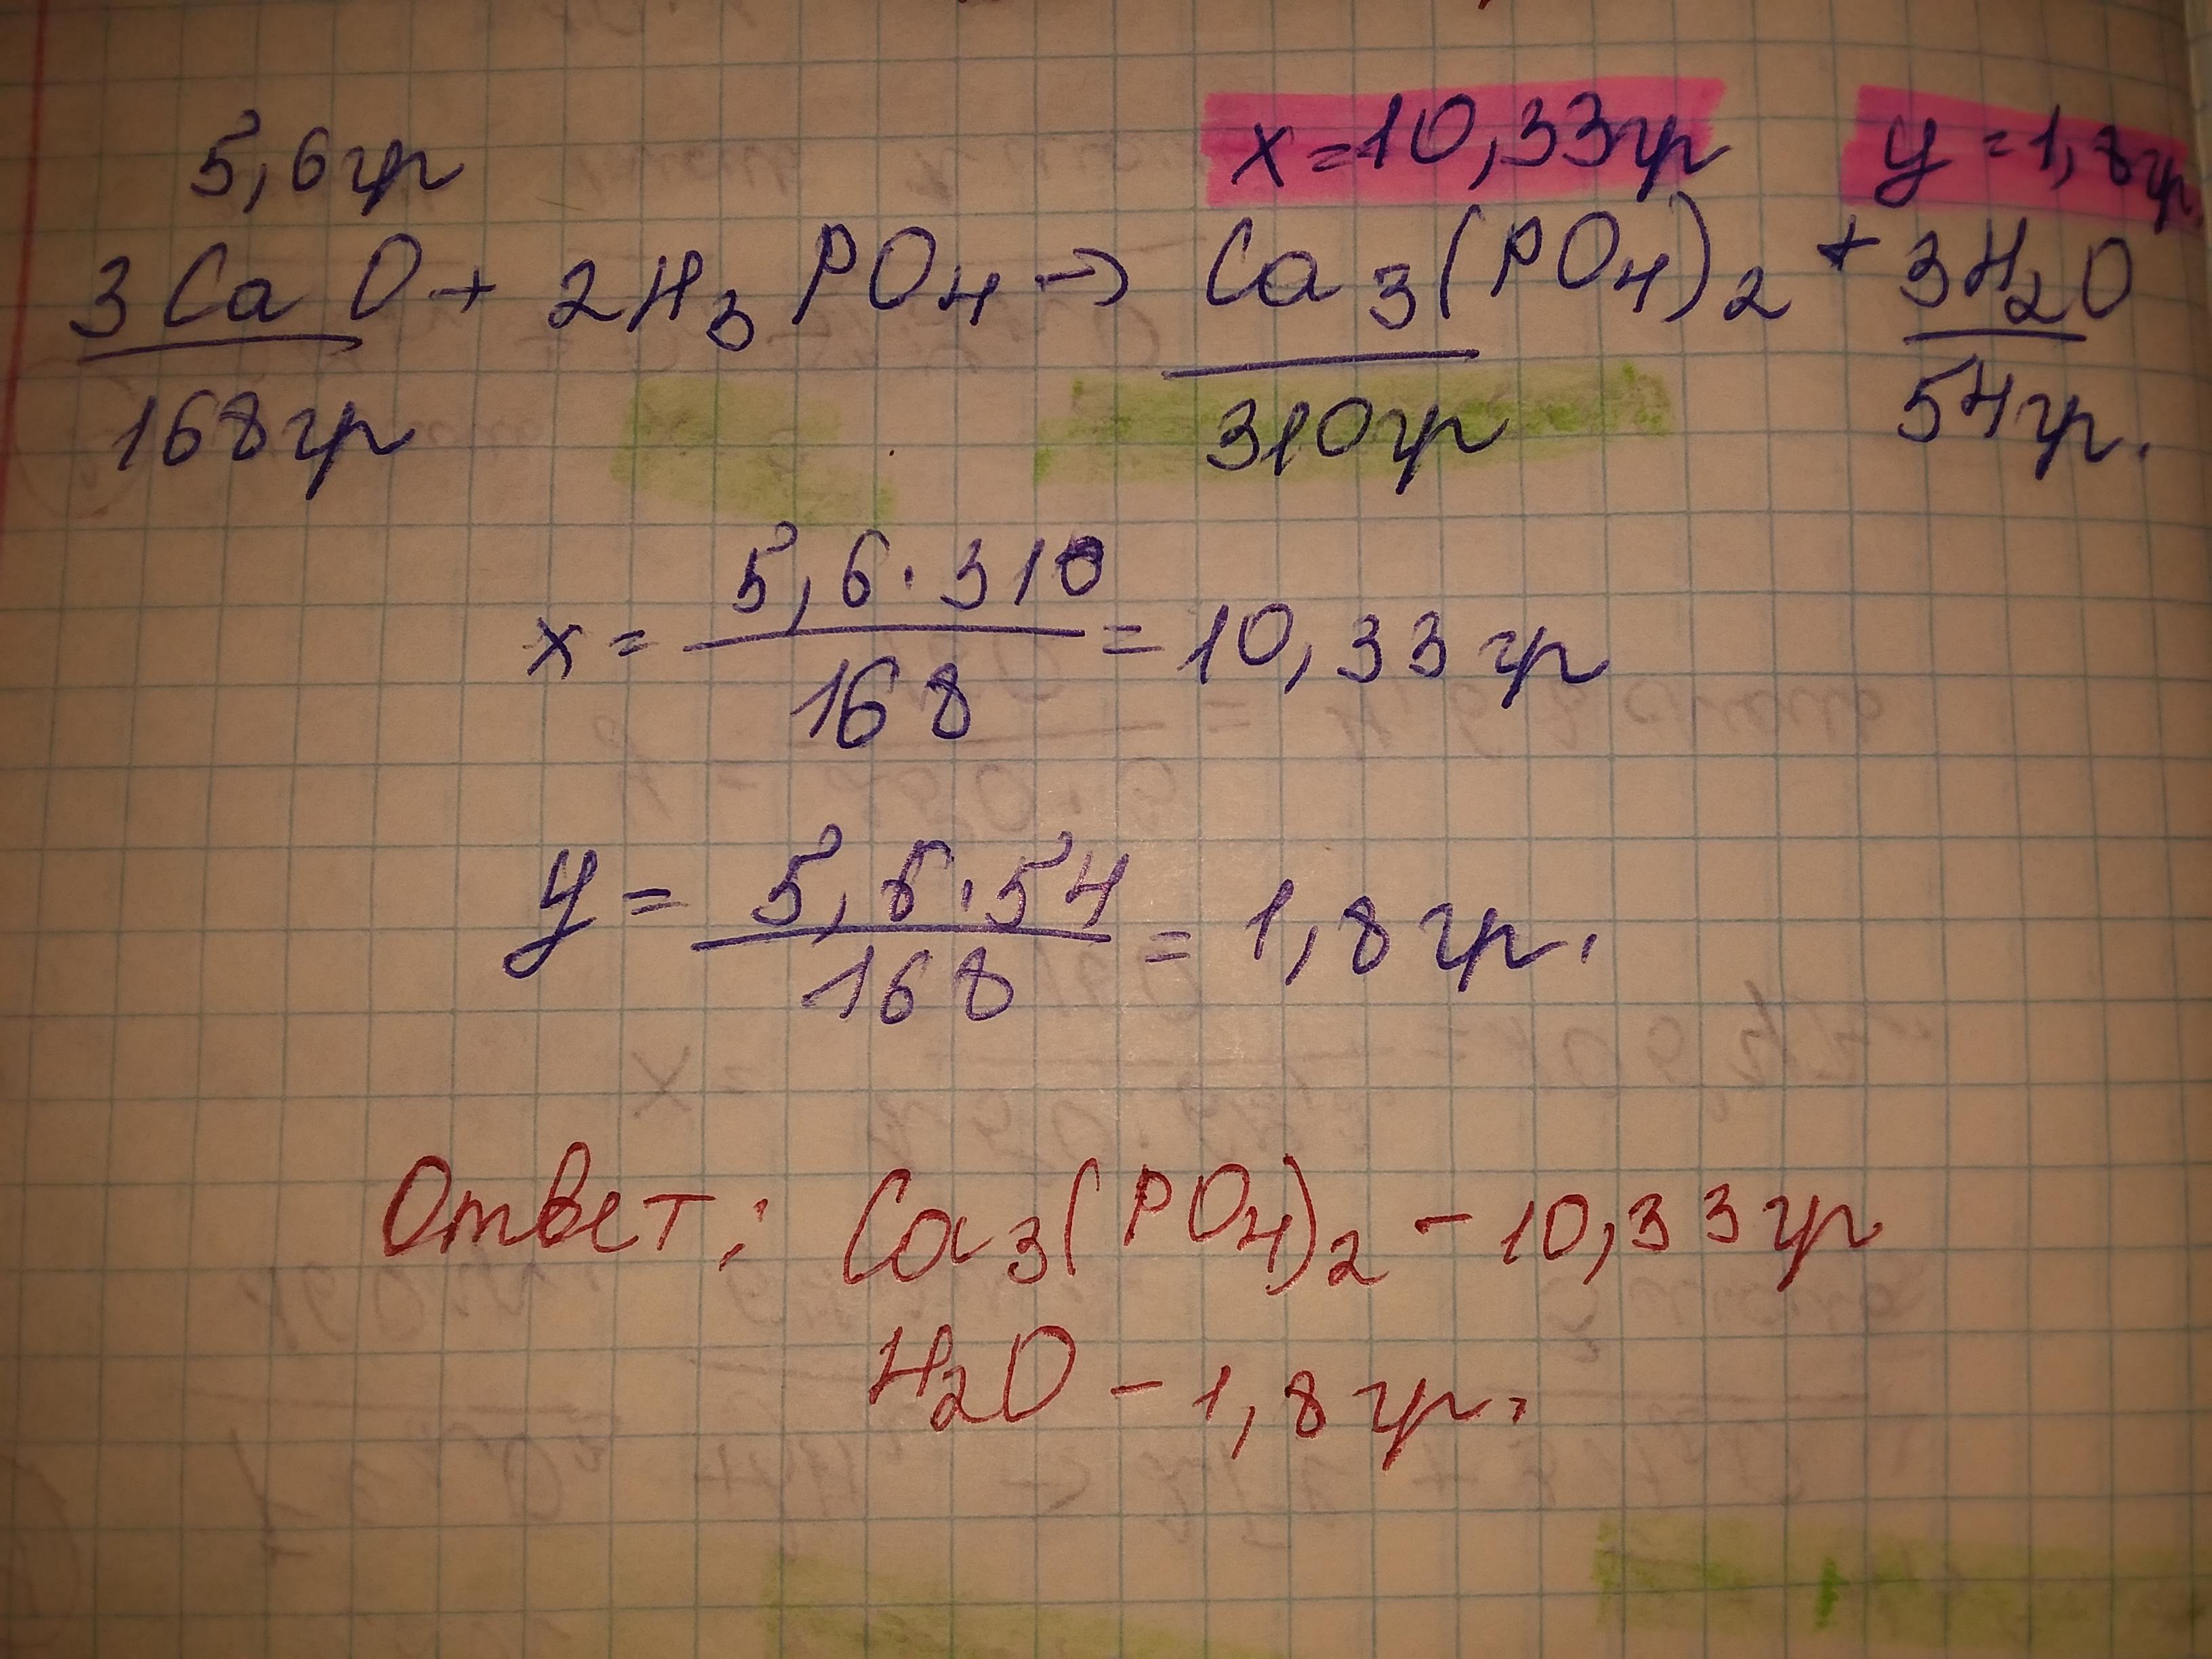 5,6гр x=10,33гр y=1,8гр.
3CaO + 2H₃PO₄ → Ca₃(PO₄)₂ + 3H₂O
168гр 310гр 54гр.
x = 5,6·310 / 168 = 10,33 гр
y = 5,6·54 / 168 = 1,8 гр.
Ответ: Ca₃(PO₄)₂ – 10,33 гр
H₂O – 1,8 гр.